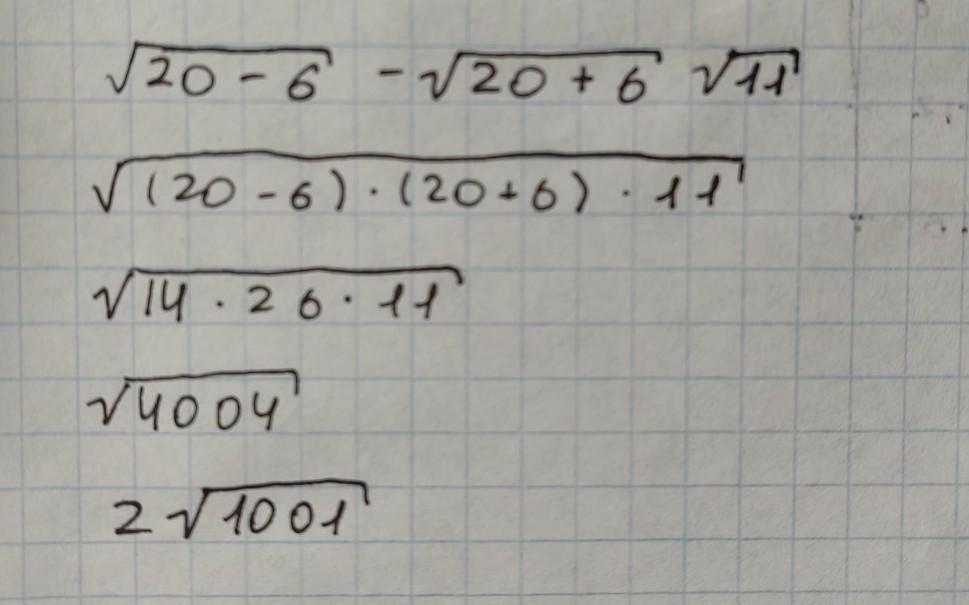 √20 - 6 - √20 + 6 √11
√(20 - 6) · (20 + 6) · 11
√14 · 26 · 11
√4004
2√1001